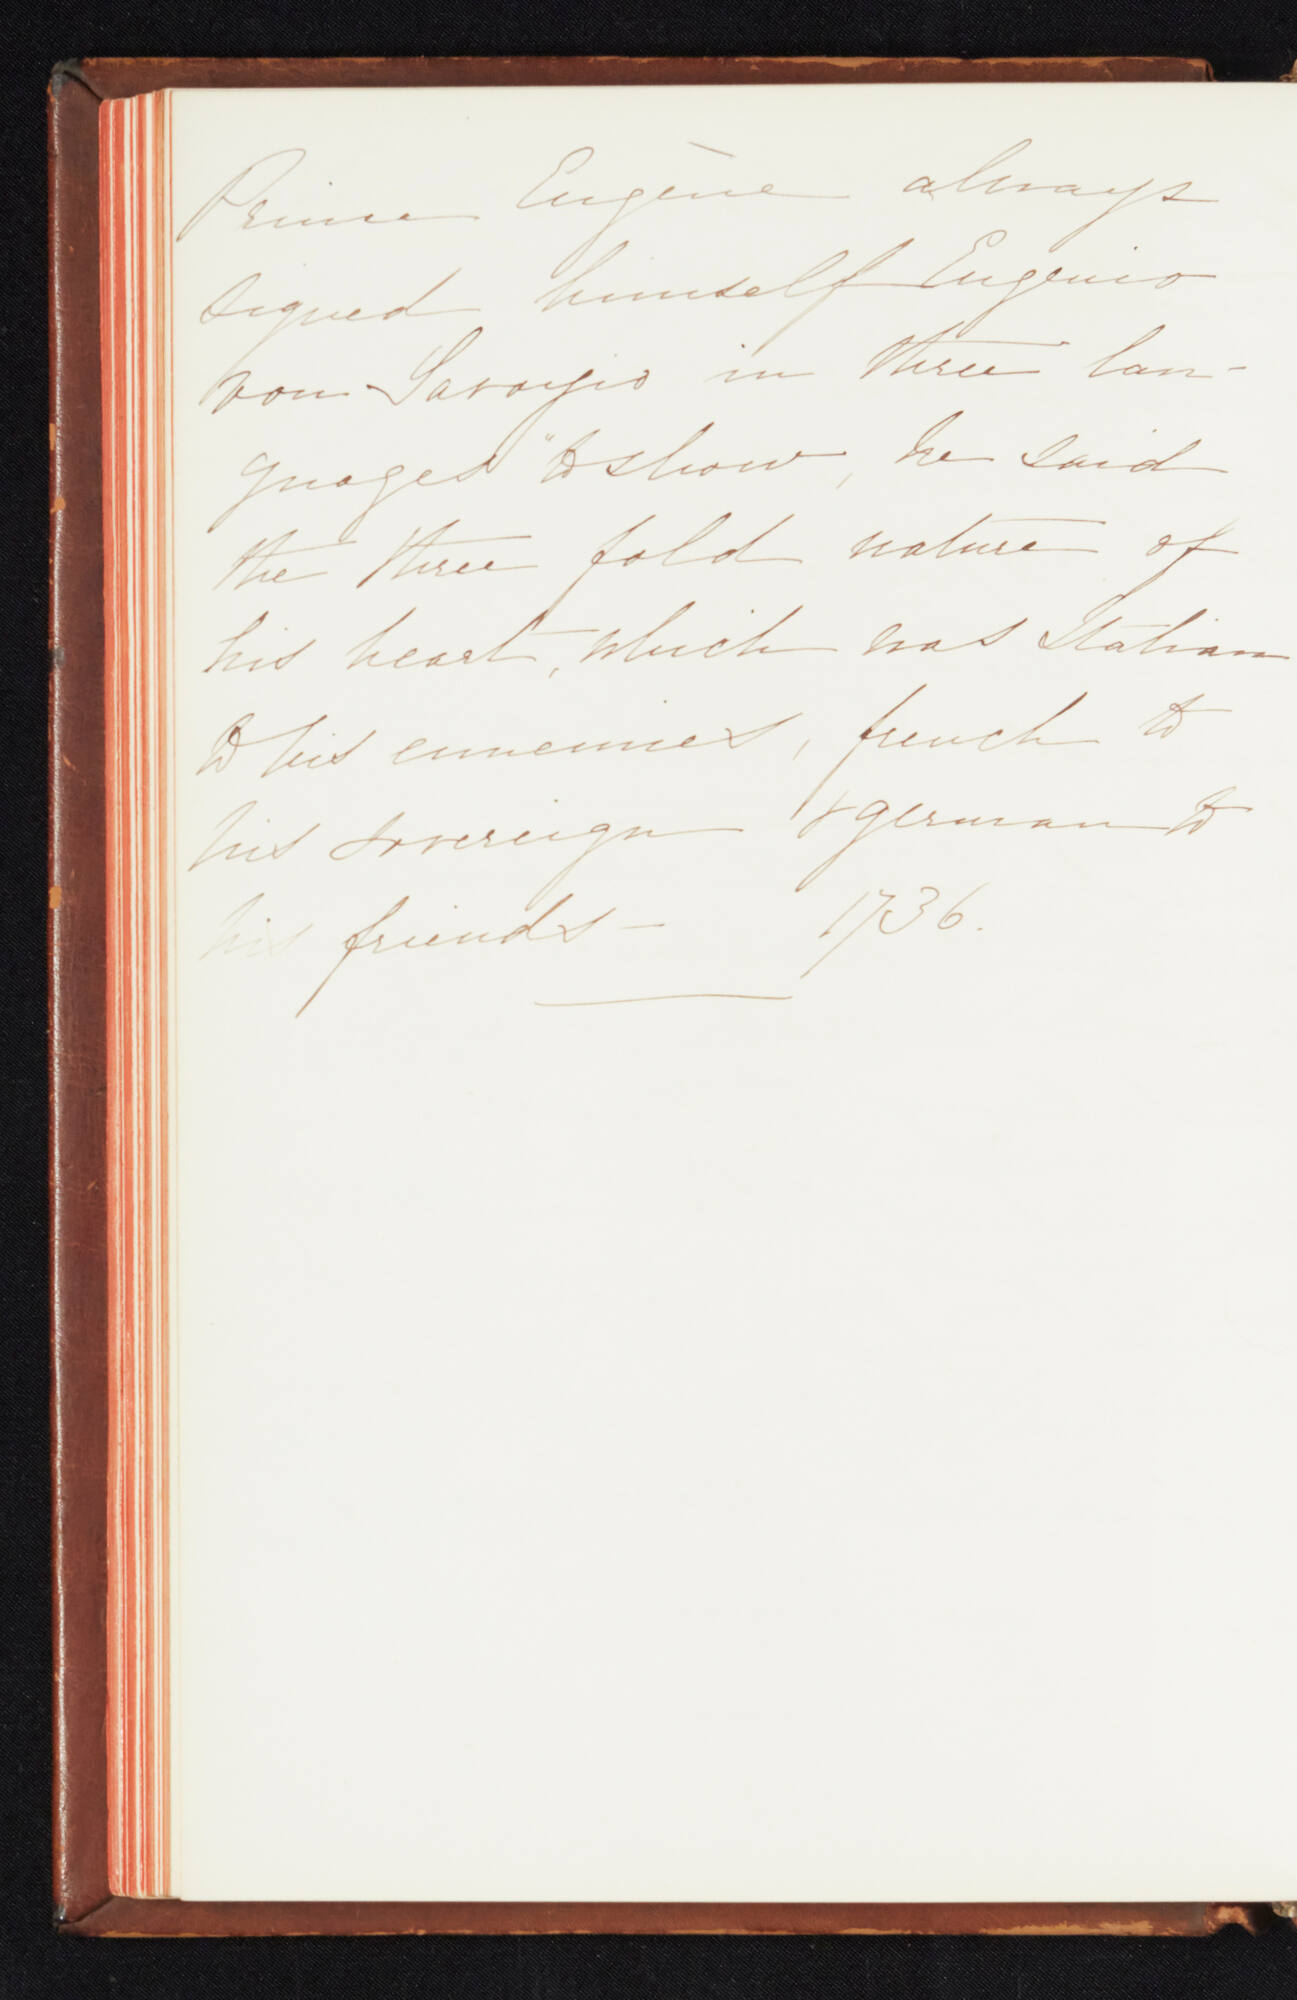 Prince Eugène always
signed himself Eugenio
von Savoyio in three lan-
guages "to show, he said
the three fold nature of
his heart, which was Italian
to his ennemies, french to
his sovereign & german to
his friends — 1736.